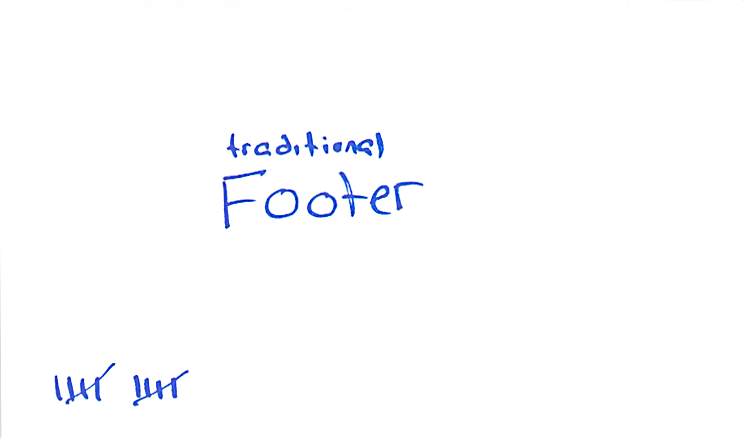 traditional
Footer